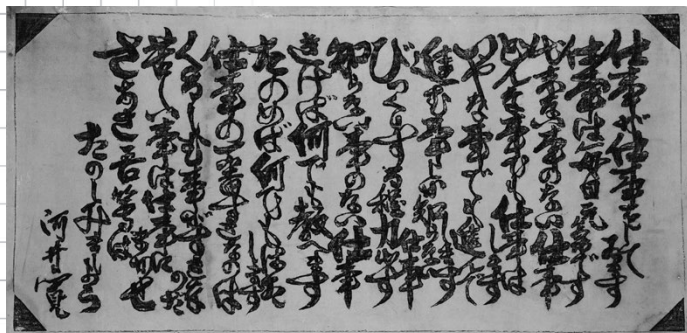 仕事が仕事をしてゐます
仕事は毎日元気です
出来ない事のない仕事
どんな事でも仕事はします
いやな事でも進んでします
進む事しか知らぬ仕事
びっくりする程力出す
知らない事のない仕事
きけば何でも教へます
たのめば何でもはたします
仕事の一番すきなのは
くるしむ事がすきなのだ
苦しい事は仕事にまかせ
さあさ吾等は
たのしみませう
河井寛